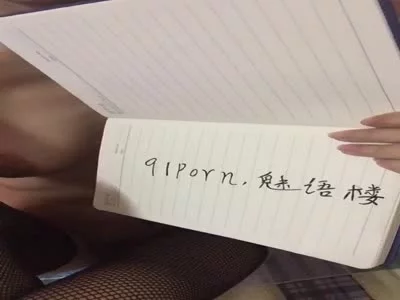 91porn. 魅语楼